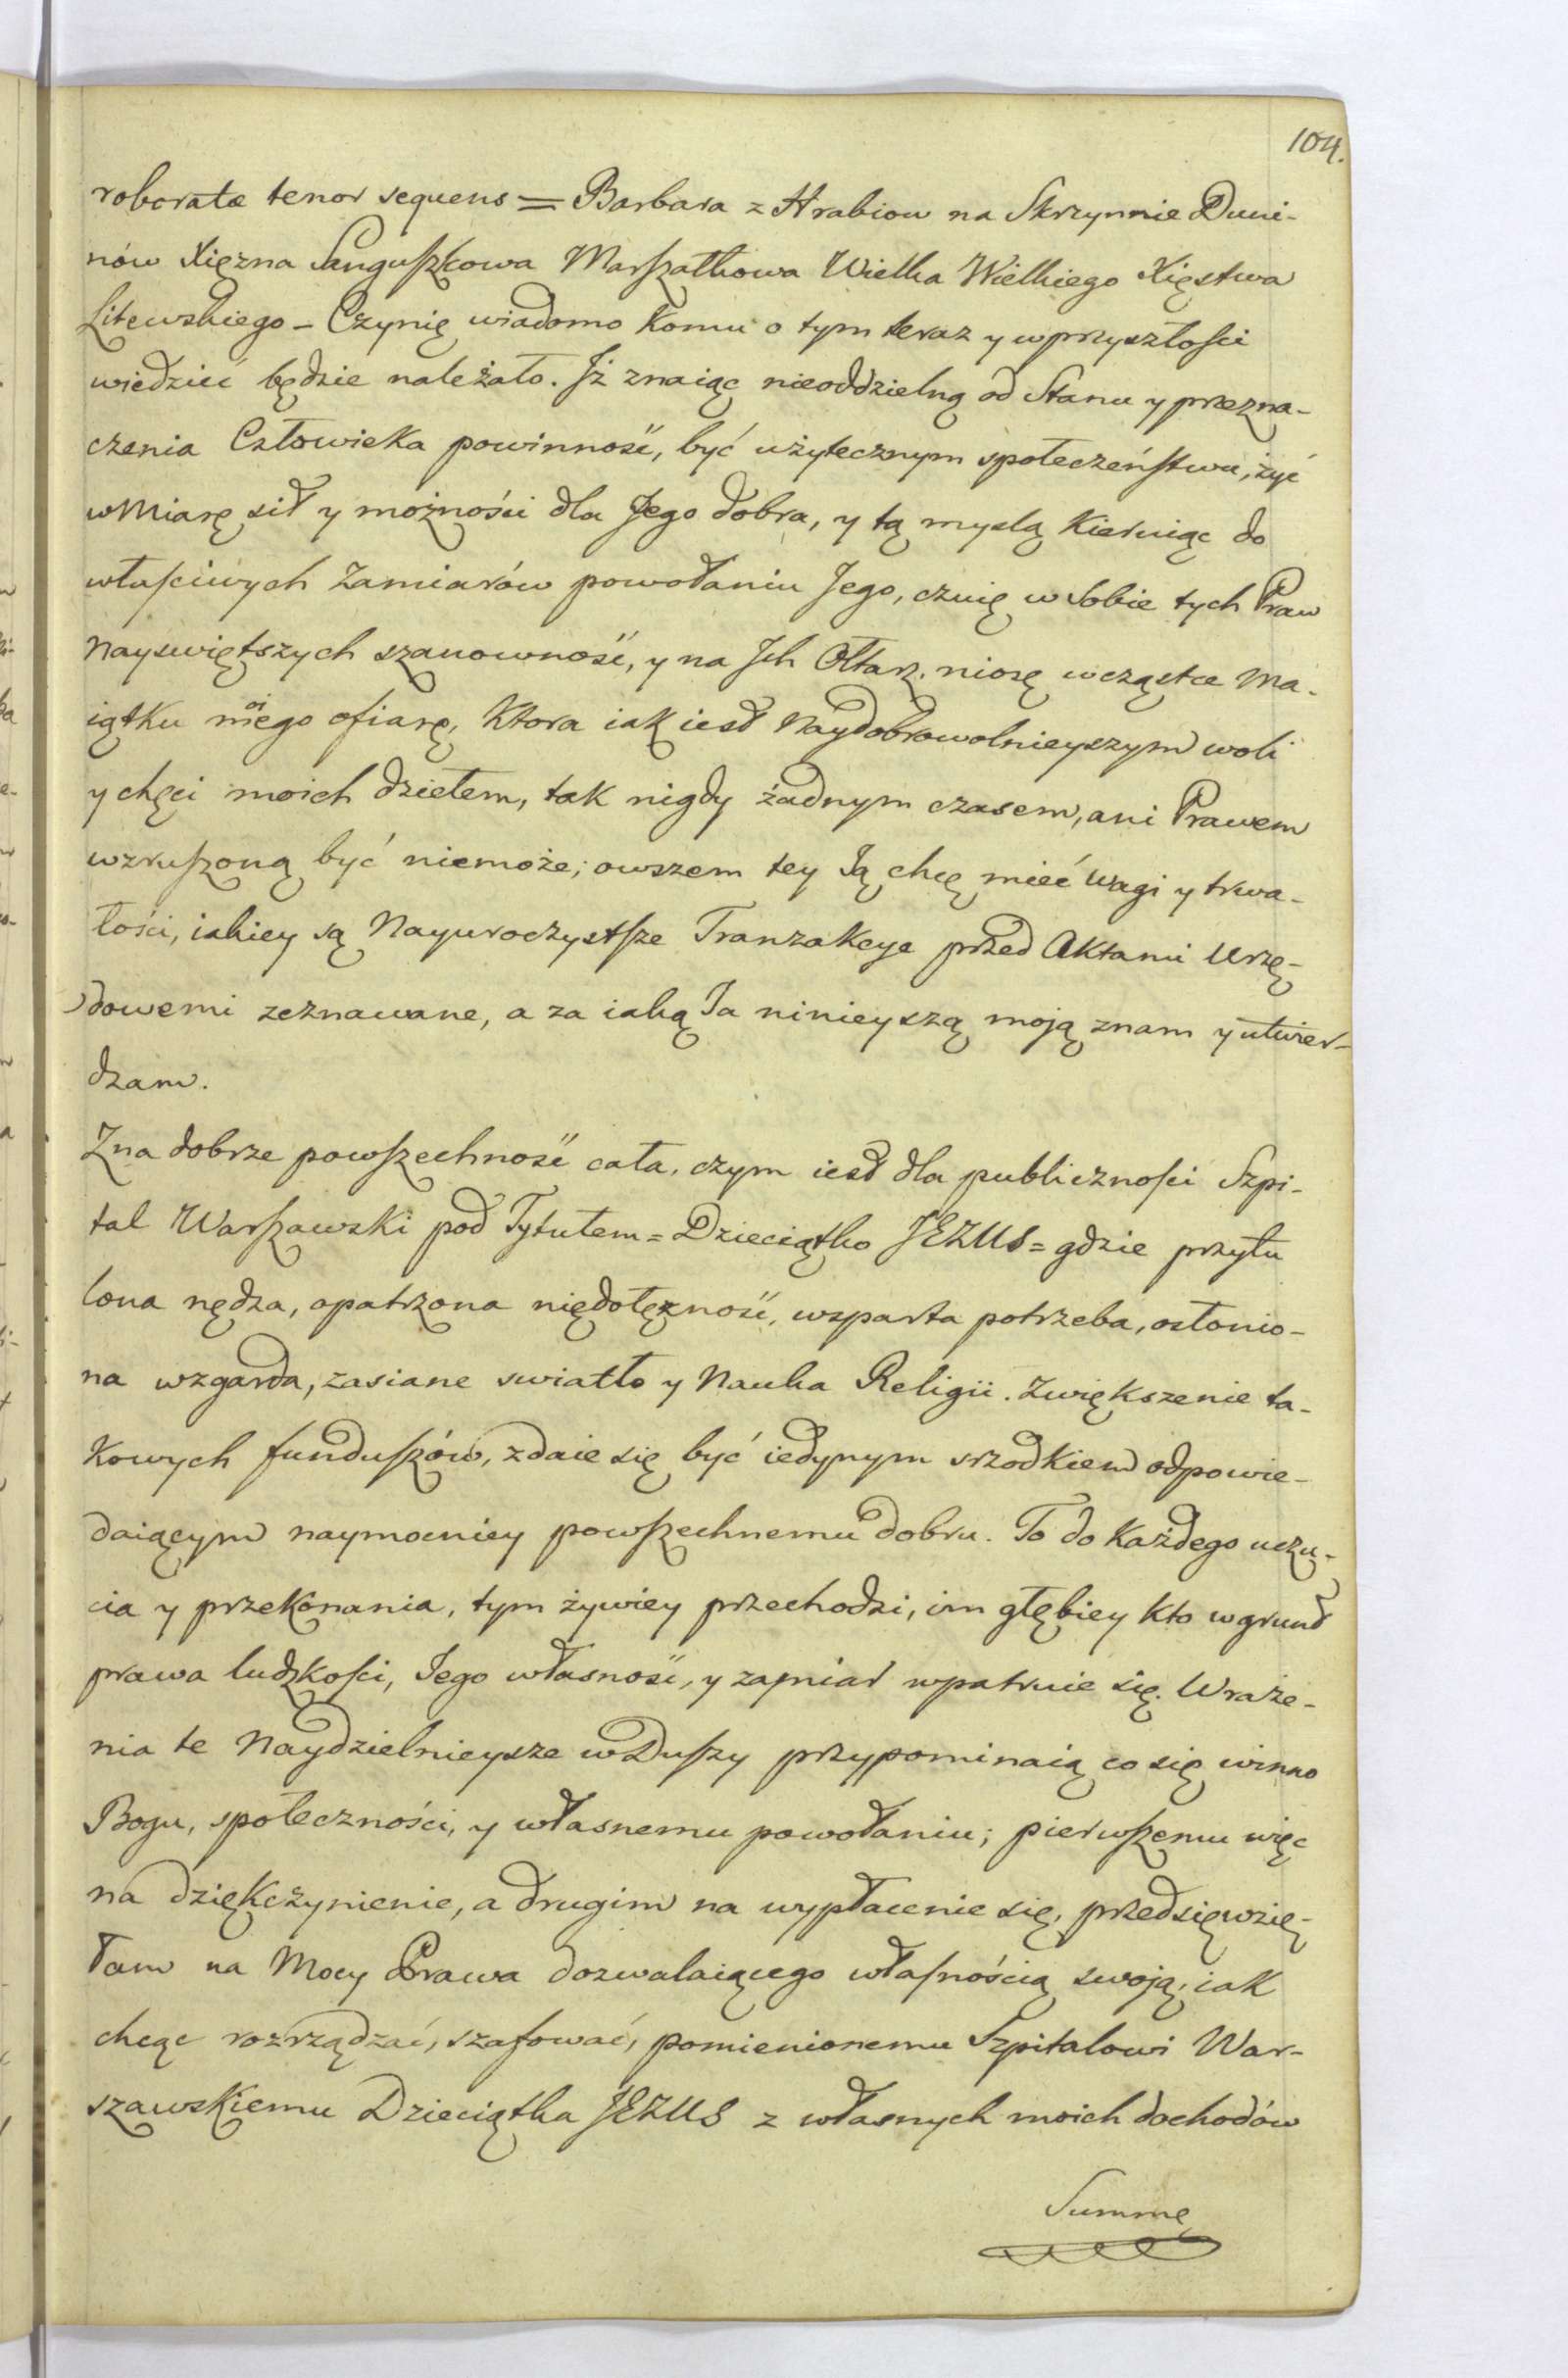 104.
roboratæ tenor sequens = Barbara z Hrabiow na Skrzynnie Duni-
nów Xięzna Sanguſzkowa Marſzałkowa Wielka Wielkiego Xięstwa
Litewskiego - Czynię wiadomo komu o tym teraz y wprzyszłoſci
wiedzieć będzie należało. Jż znaiąc nieoddzielną od Stanu y przezna-
czenia Człowieka powinność, być użytecznym społeczeńſtwu, żyć
wmiarę sił y możności dla Jego dobra, y tą myslą kieruiąc do
właſciwych zamiarów powołaniu Jego, czuię w Sobie tych Praw
Nayswiętszych szanowność, y na Jch Ołtarz niosę wcząstce Ma-
iątku moiego ofiarę, ktora iak iest Naydobrowolnieyszym woli
y chęci moich dziełem, tak nigdy żadnym czasem, ani Prawem
wzruſzoną być niemoże; owszem tey Ją chcę mieć Wagi y trwa-
łości, iakiey są Nayuroczystſze Tranzakcye przed Aktami Urzę-
dowemi zeznawane, a za iaką Ja ninieyszą moją znam y utwier-
dzam.
Zna dobrze powſzechność cała, czym iest dla publicznoſci Szpi-
tal Warſzawski pod Tytułem = Dzieciątko JEZUS = gdzie przytu
lona nędza, opatrzona niędołężność, wsparta potrzeba, osłonio-
na wzgarda, zasiane swiatło y Nauka Religii. Zwiększenie ta-
kowych funduſzów, zdaie się być iedynym srzodkiem odpowie-
daiącym naymocniey powſzechnemu dobru. To do każdego uczu-
cia y przekonania, tym żywiey przechodzi, im głębiey kto wgrunt
prawa ludzkoſci, Jego własność, y zamiar wpatruie się. Wraże-
nia te Naydzielnieysze wDuſzy przypominaią co się winno
Bogu, społeczności, y własnemu powołaniu; pierwſzemu więc
na dziękczynienie, a drugim na wypłacenie się, przedsięwzię-
łam na Mocy Prawa dozwalaiącego właſnością swoją, iak
chcąc rozrządzać, szafować, pomienionemu Szpitalowi War-
szawskiemu Dzieciątka JEZUS z własnych moich dochodów
Summę